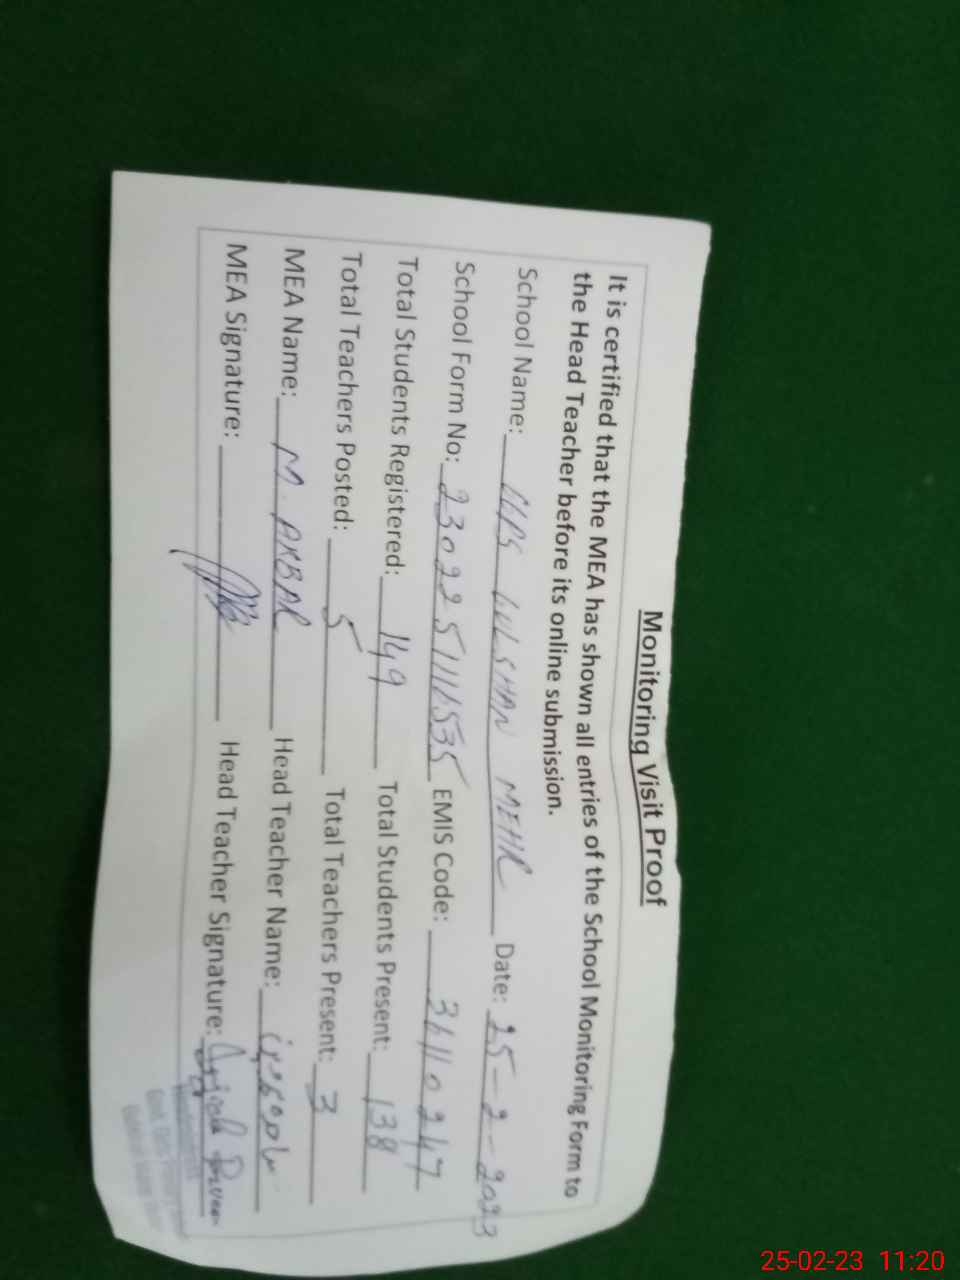 Monitoring Visit Proof
It is certified that the MEA has shown all entries of the School Monitoring Form to
the Head Teacher before its online submission.
School Name: GPS GULSHAN MEHR Date: 25-2-2023
School Form No: 2302251116535 EMIS Code: 36110247
Total Students Registered: 149 Total Students Present: 138
Total Teachers Posted: 5 Total Teachers Present: 3
MEA Name: M. AKBAR Head Teacher Name:
MEA Signature: Head Teacher Signature:
25-02-23 11:20